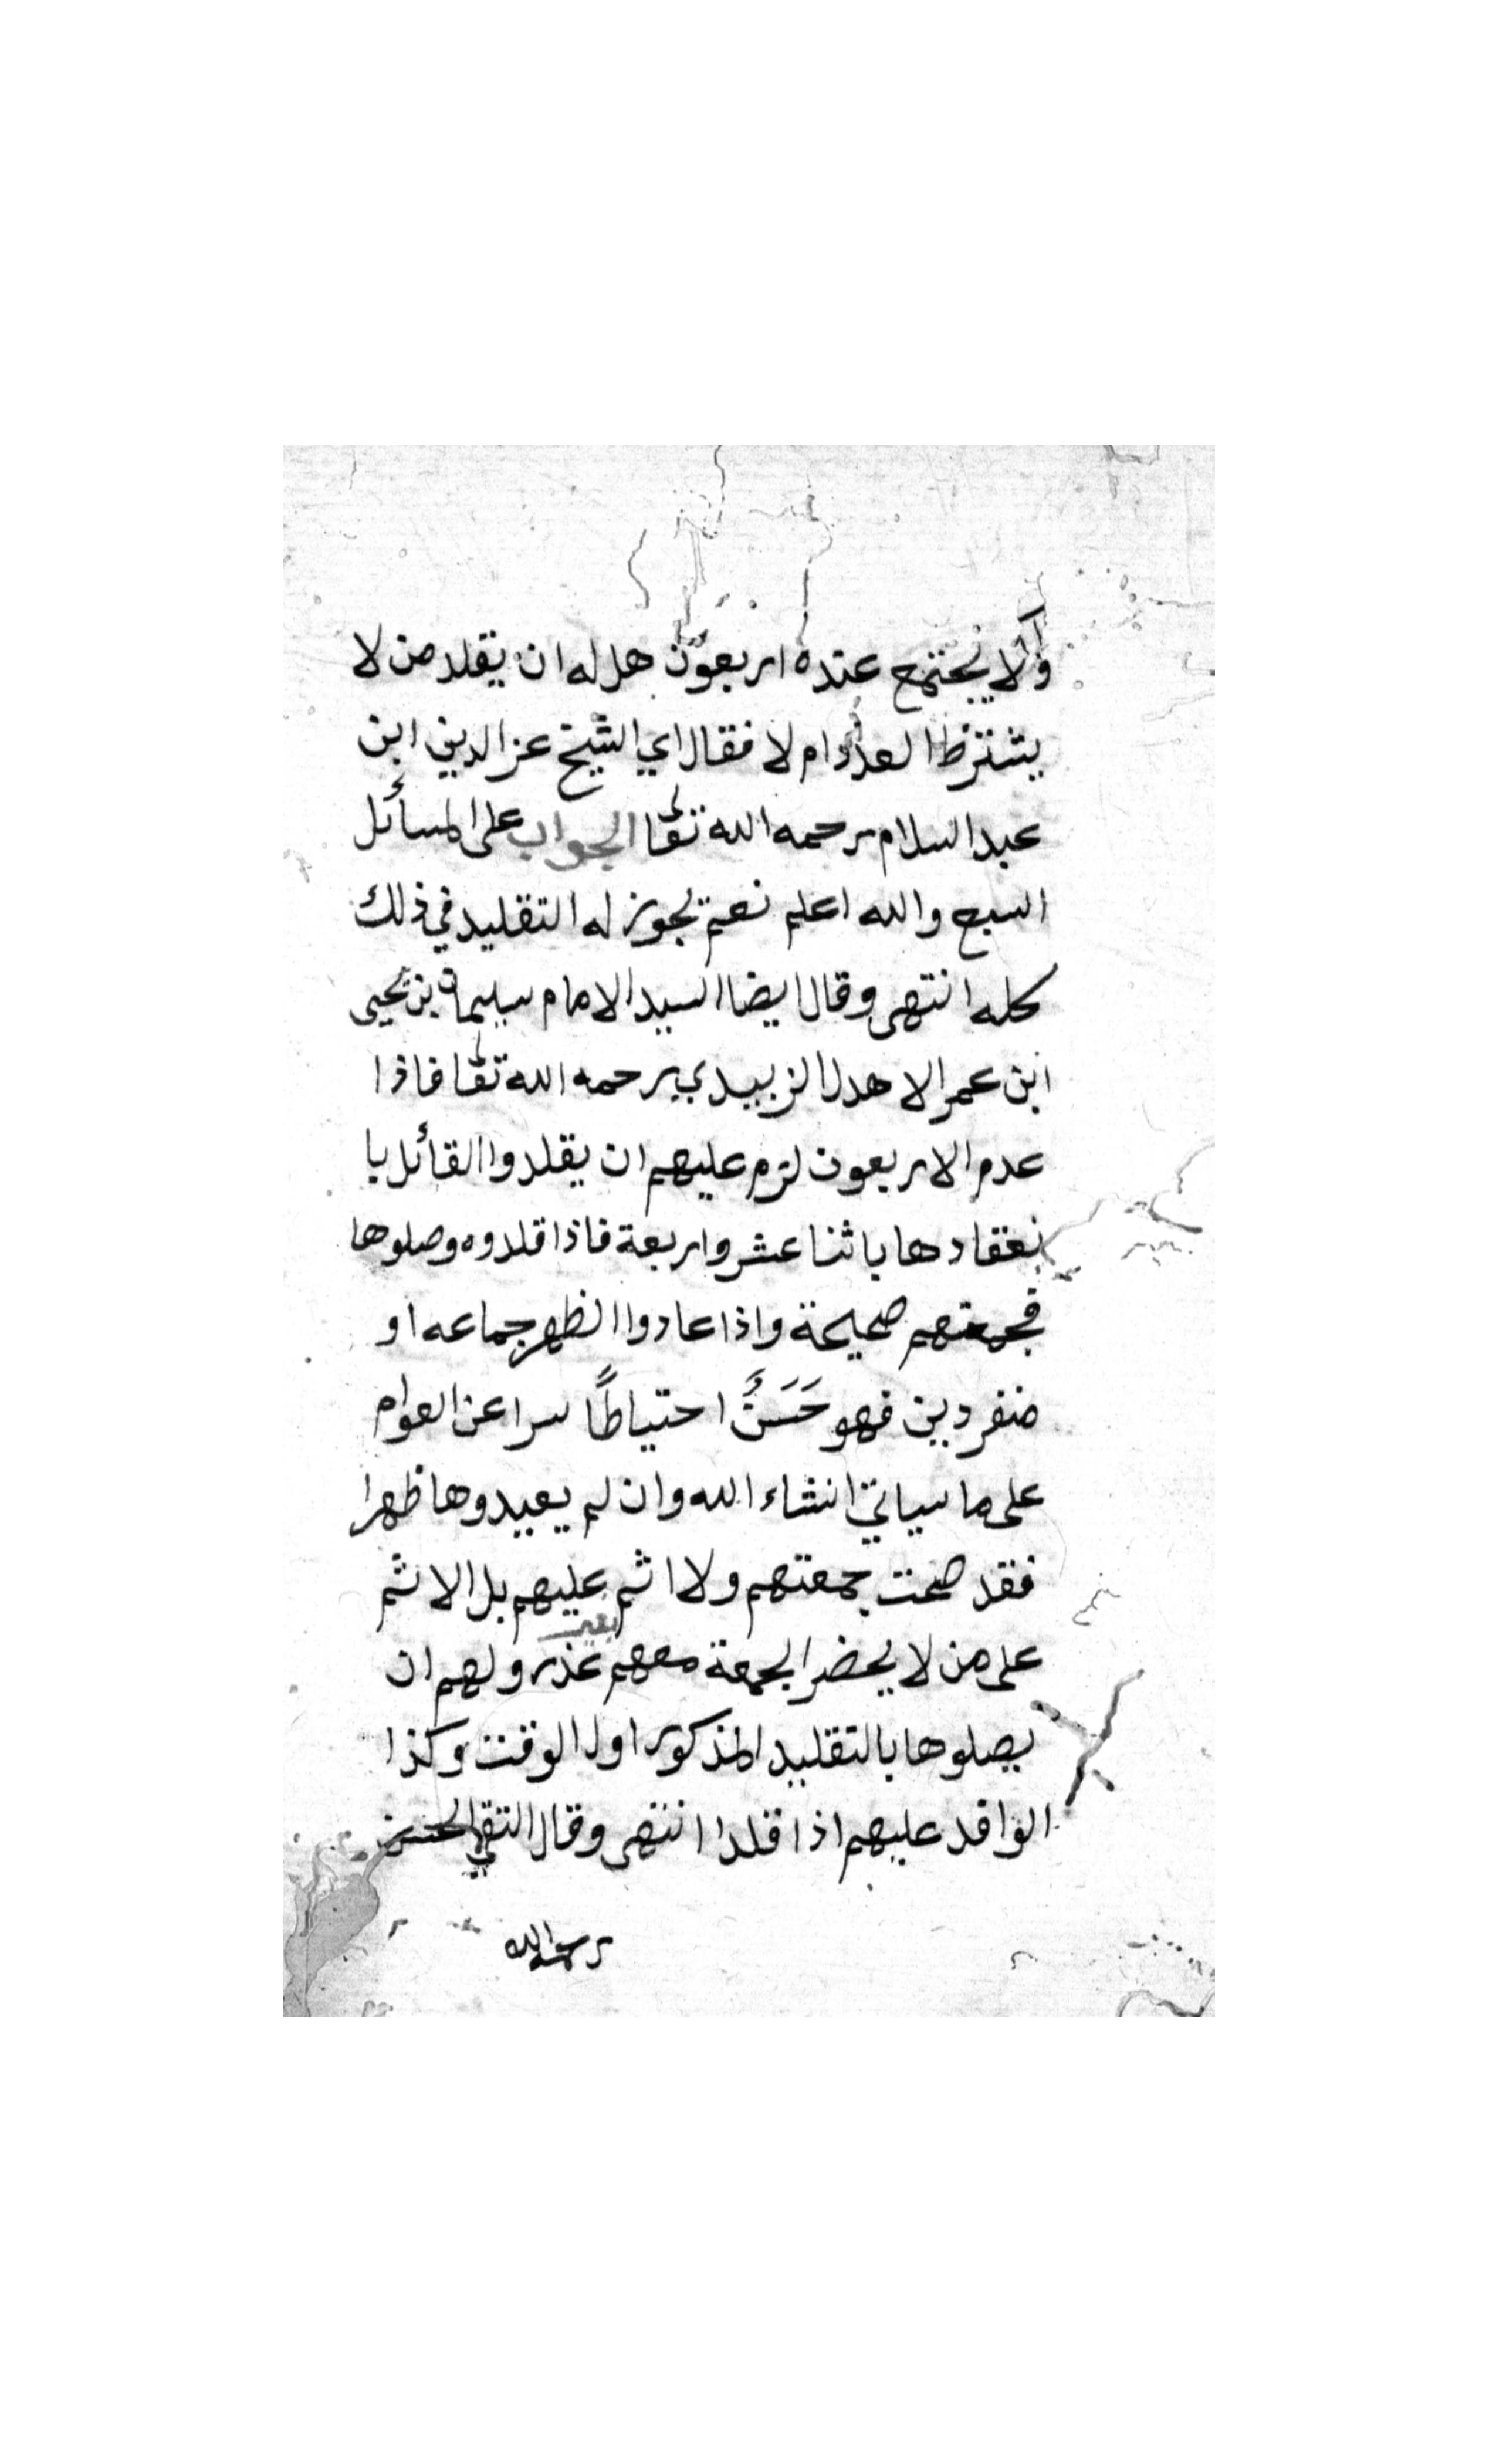 ولا يجتمع عنده اربعون هل له ان يقلد من لا
يشترط العدد ام لا فقال اي الشيخ عز الدين ابن
عبد السلام رحمه الله تعا لى الجواب على المسائل
السبع والله اعلم نعم يجوز له التقليد في ذلك
كله انتهى وقال ايضا السيد الامام سليمان بن يحيى
ابن عمر الاهدل الزبيدي رحمه الله تعالى فاذا
عدم الاربعون لزم عليهم ان يقلدوا القائل با
نعقادها باثنا عشر واربعة فاذا قلدوه وصلوها
فجمعتهم صحيحة واذا عادوا الظهر جماعه او
منفردين فهو حَسَنٌ احتياطًا سرا عن العوام
على ما سياتي انشاء الله وان لم يعيدوها ظهرا
فقد صحت جمعتهم ولا اثم عليهم بل الاثم
على من لا يحضر الجمعة معهم بغير عذر ولهم ان
يصلوها بالتقليد المذكور اول الوقت وكذا
الوافد عليهم اذا قلدا انتهى وقال التقي
رحمه الله